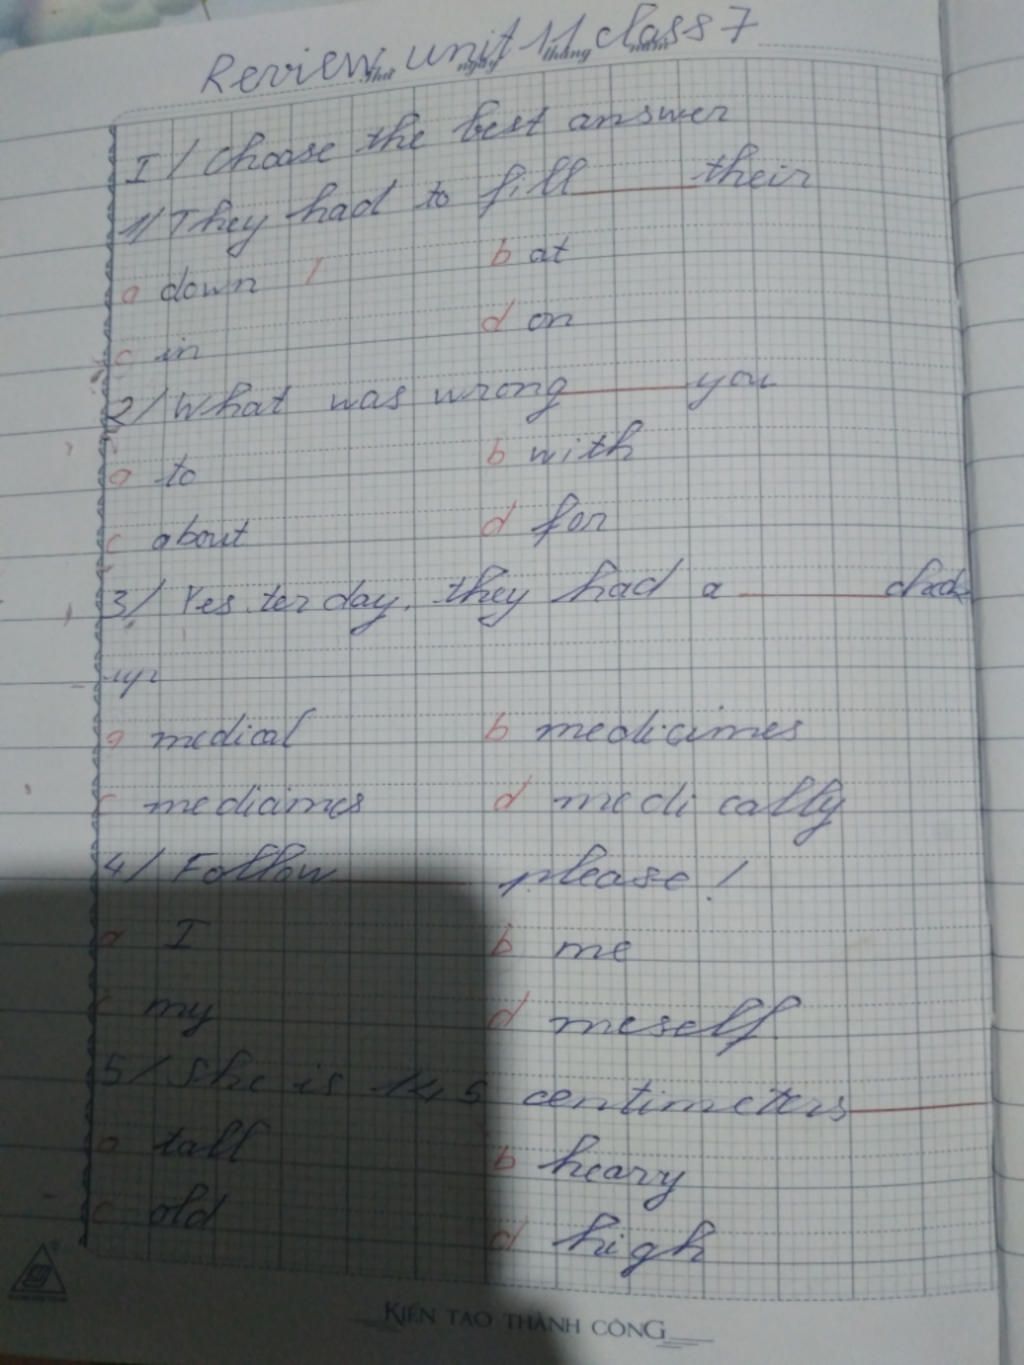 Review unit 11 class 7
Thứ ngày tháng năm
I/ Choose the best answer
1/ They had to fill ______ their
a down b at
c in d on
2/ What was wrong ______ you
a to b with
c about d for
3/ Yesterday, they had a ______ check
up
a medical b medicimes
c mediaimes d medically
4/ Follow ______ please!
a I b me
c my d meself
5/ She is 145 centimeters ______
a tall b heavy
c old d high
KIẾN TẠO THÀNH CÔNG